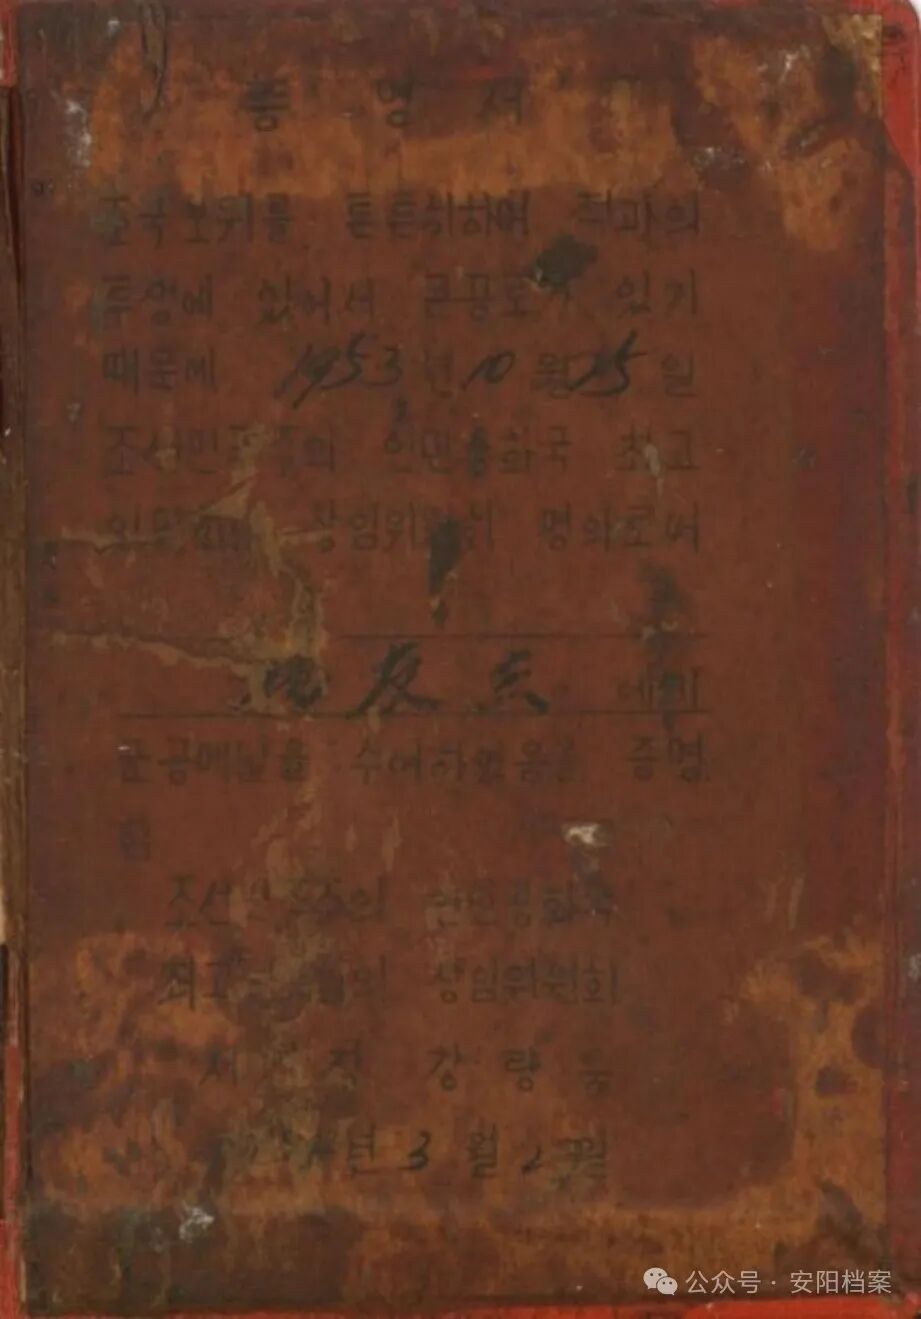 증 명 서
조국보위를 튼튼히하며 적과의
투쟁에 있어서 큰공로가 있기
때문에 1953년 10월 25일
조선민주주의 인민공화국 최고
인민회의 상임위원회 명의로써
友 에게
군공메달을 수여하였음을 증명
함
조선민주주의 인민공화국
최고인민회의 상임위원회
서기장 강량욱
년 3월 2 일
公众号 · 安阳档案